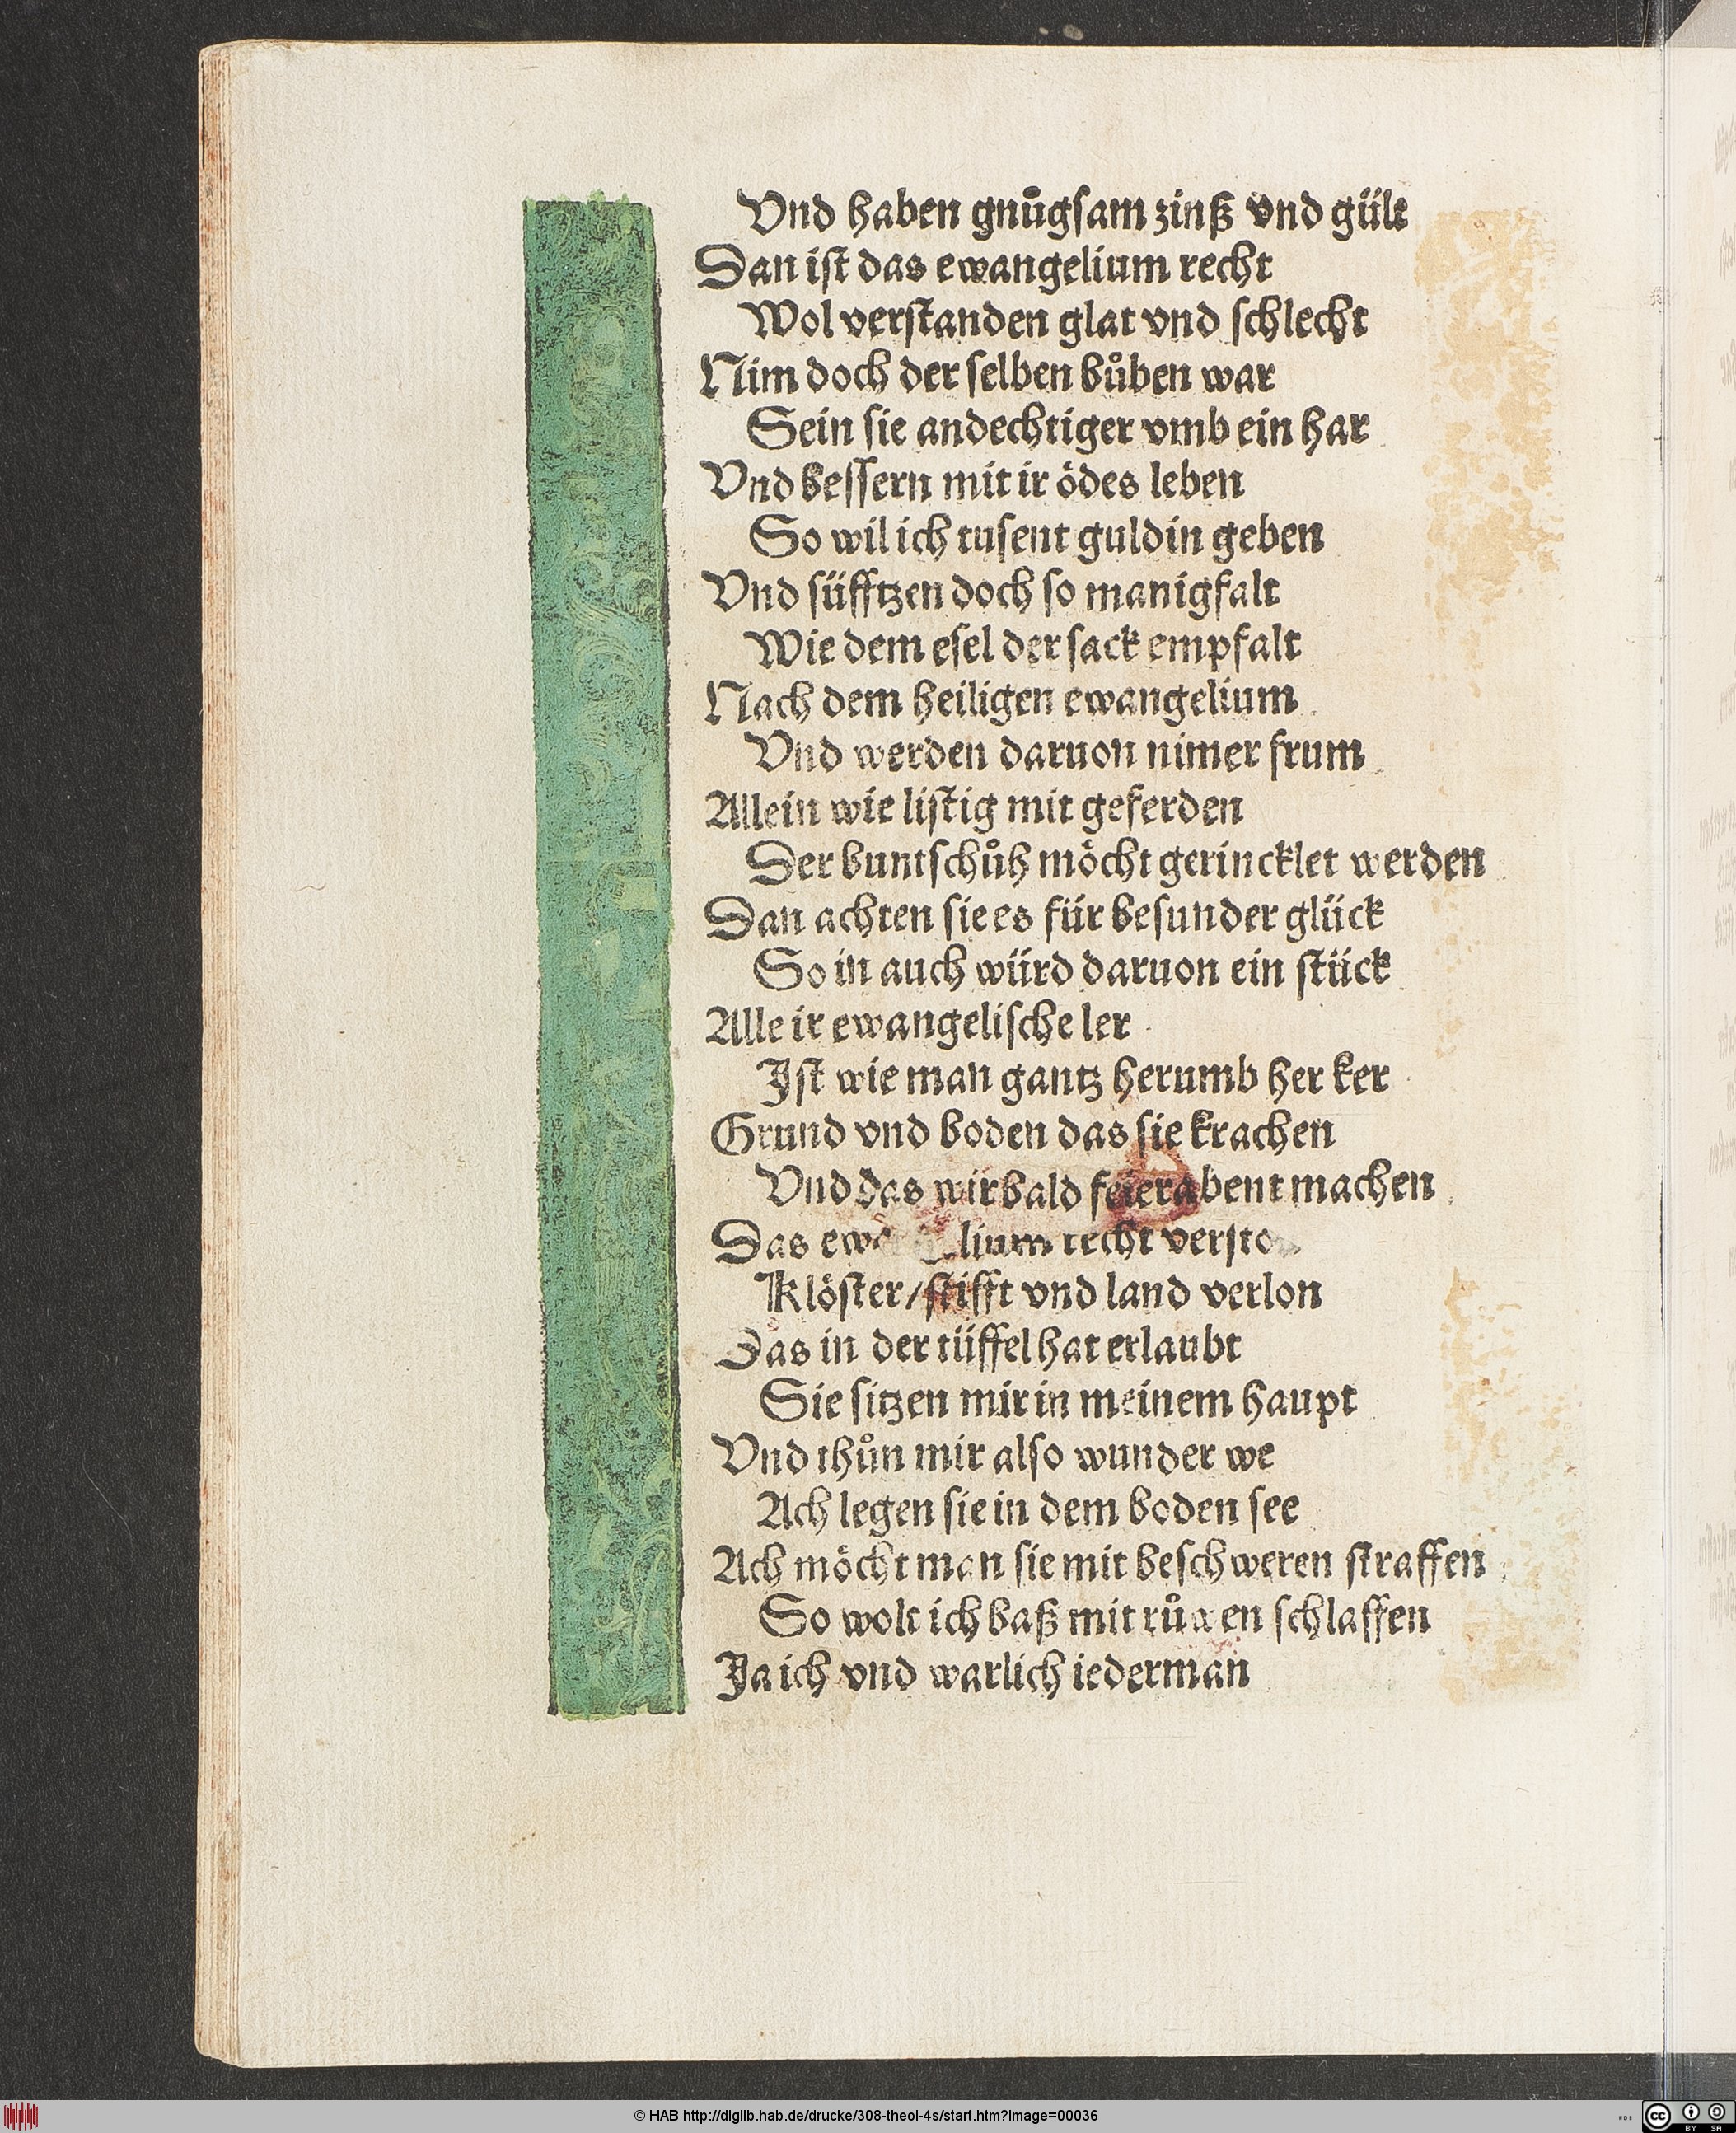 Vnd haben gnůgsam zinß vnd gült
Dan ist das ewangelium recht
Wol verstanden glat vnd schlecht
Nim doch der selben bůben war
Sein sie andechtiger vmb ein har
Vnd bessern mit ir ödes leben
So wil ich tusent guldin geben
Vnd süfftzen doch so manigfalt
Wie dem esel der sack empfalt
Nach dem heiligen ewangelium
Vnd werden daruon nimer frum
Allein wie listig mit geferden
Der buntschůh möcht gerincklet werden
Dan achten sie es für besunder glück
So in auch würd daruon ein stück
Alle ir ewangelische ler
Ist wie man gantz herumb her ker
Grund vnd boden das sie krachen
Vnd das wir bald feierabent machen
Das recht
Klöster/stifft vnd land verlon
Das in der tüffel hat erlaubt
Sie sitzen mir in meinem haupt
Vnd thůn mir also wunder we
Ach legen sie in dem boden see
Ach möcht man sie mit beschweren straffen
So wolt ich baß mit schlaffen
Ja ich vnd warlich iederman
© HAB http://diglib.hab.de/drucke/308-theol-4s/start.htm?image=00036
cc BY SA